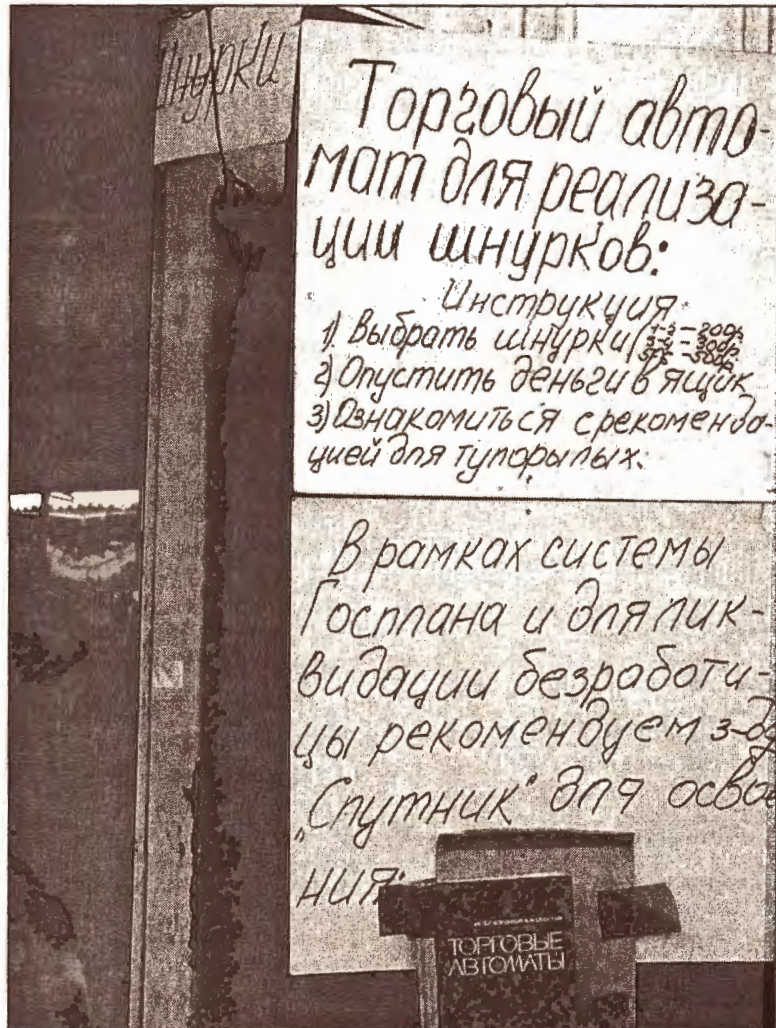 Шнурки
Торговый авто-
мат для реализа-
ции шнурков:
Инструкция
1) Выбрать шнурки (1-2 - 200р
300р
500р
2) Опустить деньги в ящик
3) Ознакомиться с рекоменда-
цией для тупорылых:
В рамках системы
Госплана и для лик-
видации безработи-
цы рекомендуем з-ду
„Спутник“ для освое
ния:
ТОРГОВЫЕ
АВТОМАТЫ